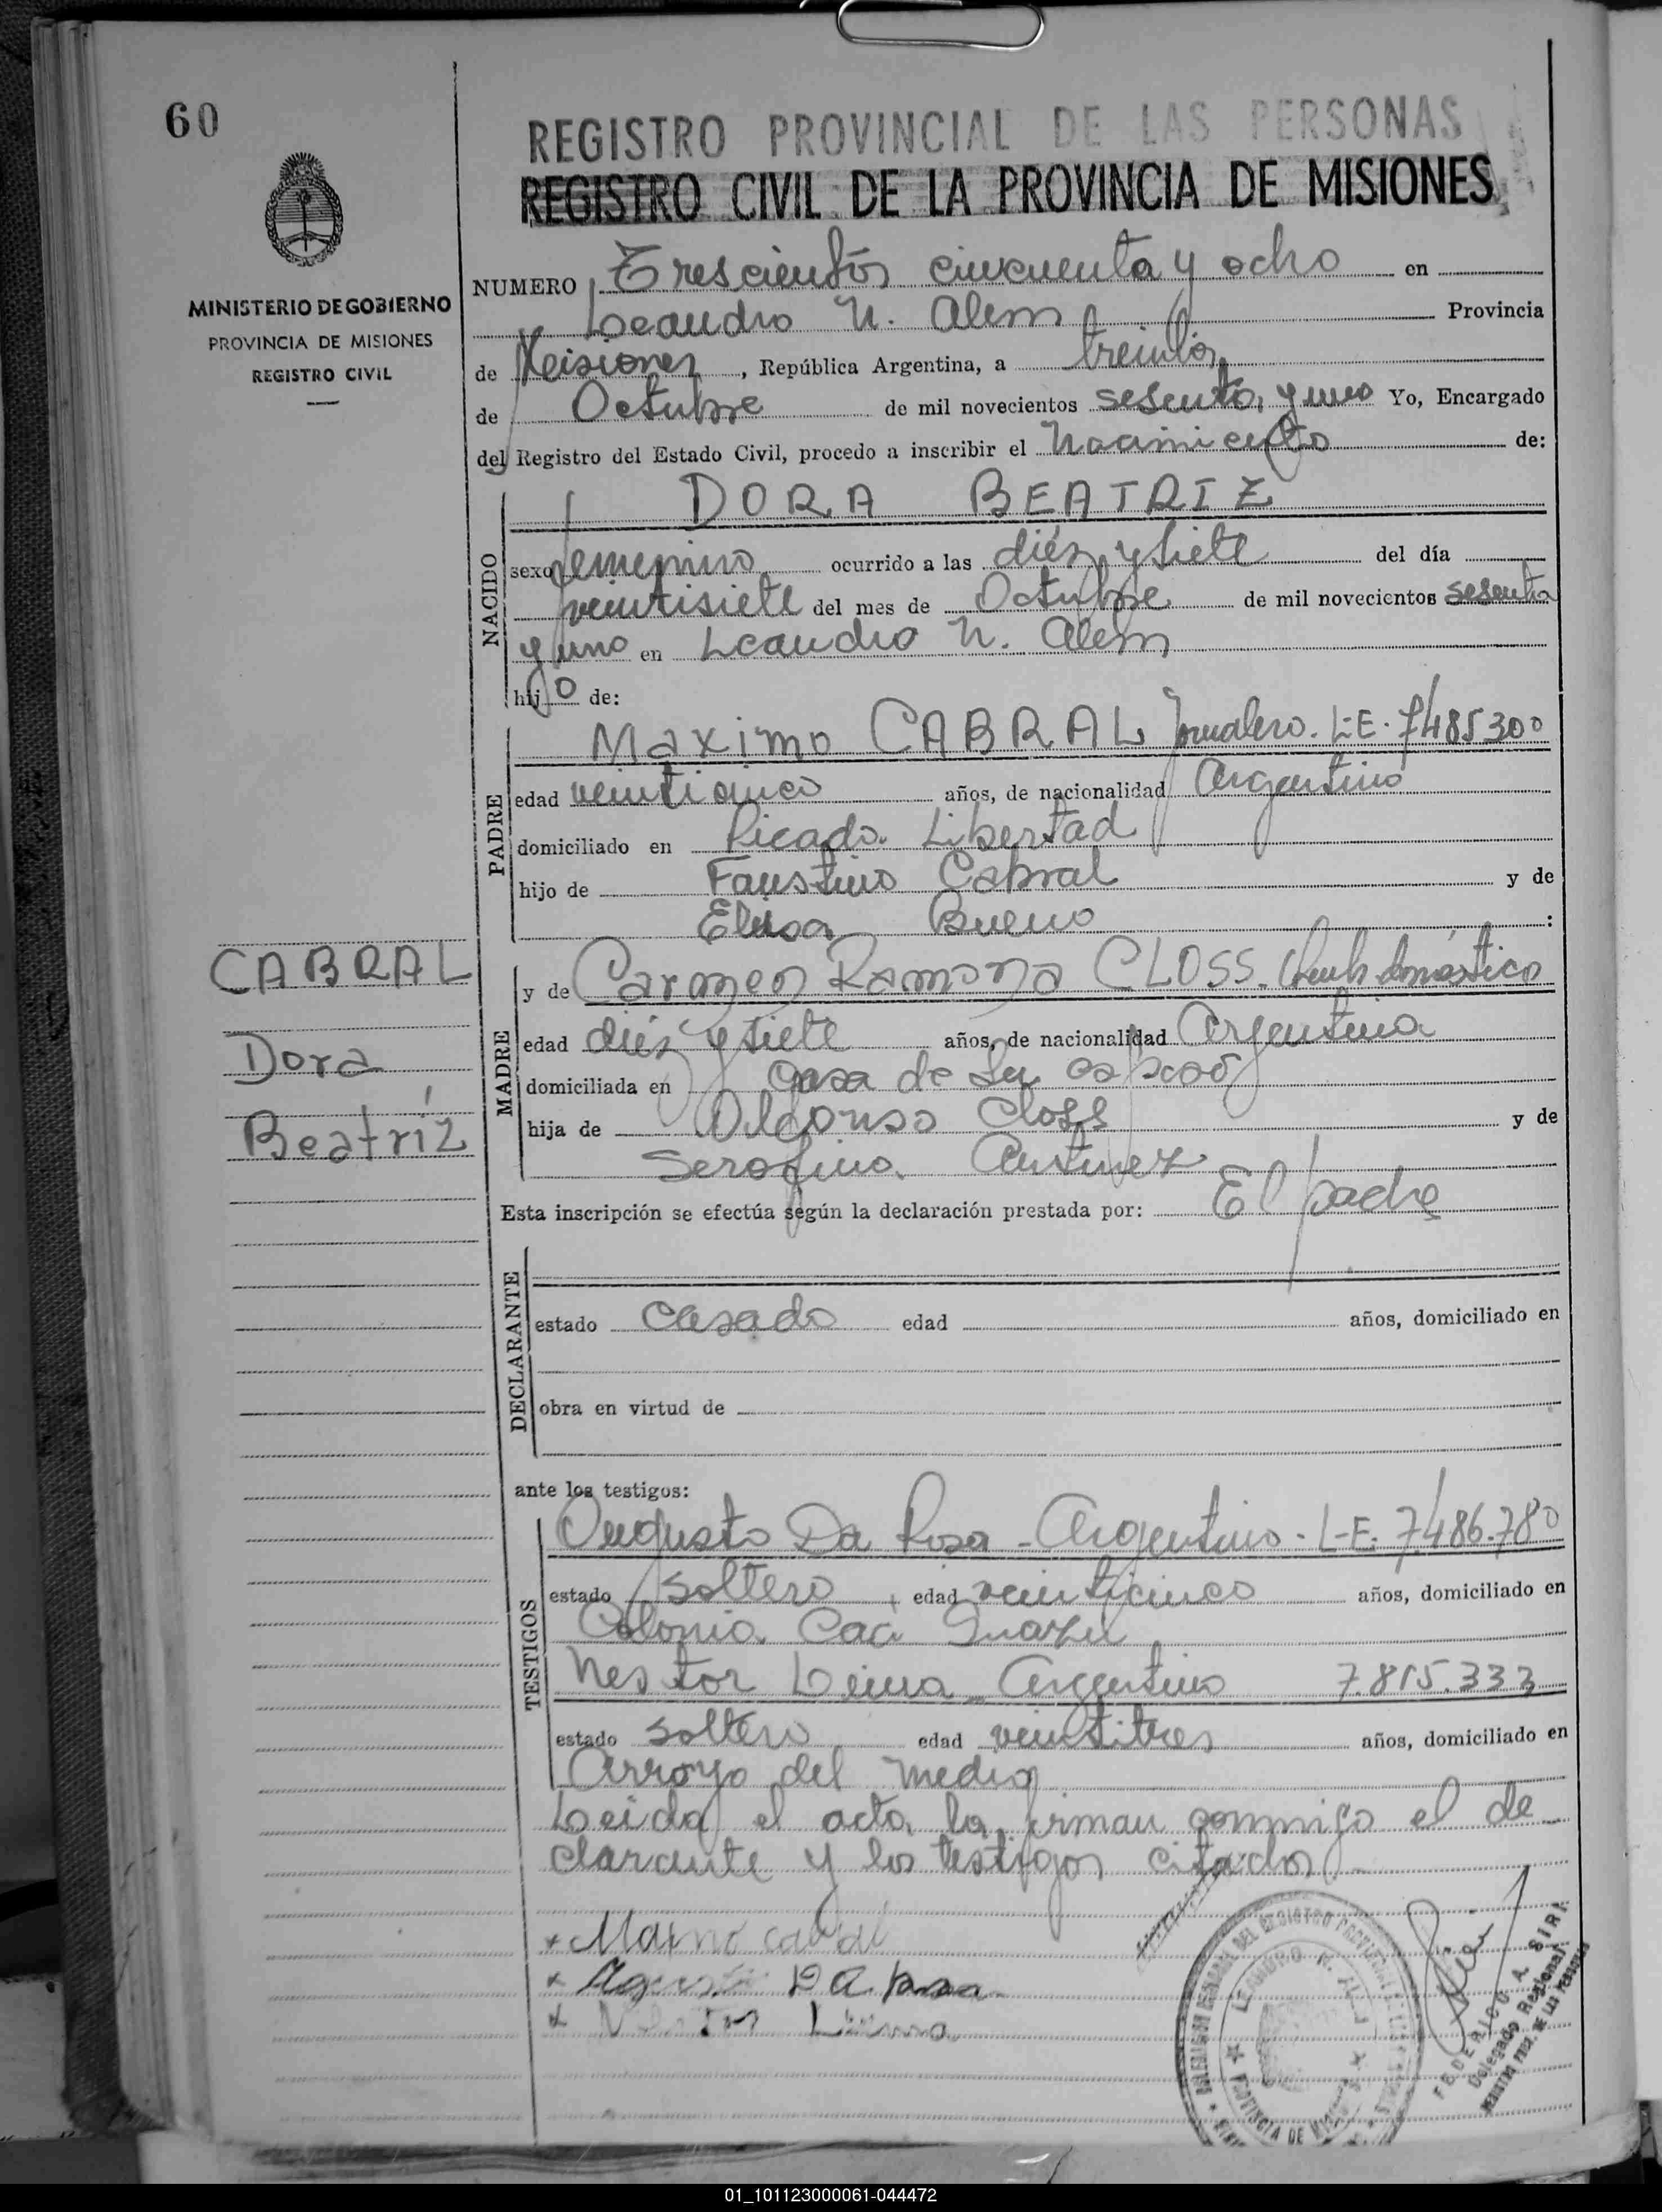 60
REGISTRO PROVINCIAL DE LAS PERSONAS
REGISTRO CIVIL DE LA PROVINCIA DE MISIONES
MINISTERIO DE GOBIERNO
PROVINCIA DE MISIONES
REGISTRO CIVIL
NUMERO Trescientos cincuenta y ocho en
Leandro N. Alem Provincia
de Misiones, República Argentina, a treinta
de Octubre de mil novecientos sesenta y uno Yo, Encargado
del Registro del Estado Civil, procedo a inscribir el Nacimiento de:
NACIDO
DORA BEATRIZ
sexo femenino ocurrido a las diéz y siete del día
veintisiete del mes de Octubre de mil novecientos sesenta
y uno en Leandro N. Alem
hijo de:
PADRE
Maximo CABRAL Jornalero. L-E. 7485300
edad veinticinco años, de nacionalidad Argentino
domiciliado en Picada Libertad
hijo de Faustino Cabral y de
Elisa Bueno :
CABRAL
Dora
Beatríz
MADRE
y de Carmen Ramona CLOSS. doméstico
edad diéz y siete años, de nacionalidad Argentina
domiciliada en casa de su esposo
hija de Alfonso Closs y de
Serafina Antunez
Esta inscripción se efectúa según la declaración prestada por: El padre
DECLARANTE
estado casado edad años, domiciliado en
obra en virtud de
ante los testigos:
TESTIGOS
Augusto Da Rosa - Argentino - L-E. 7.486.780
estado soltero, edad veinticinco años, domiciliado en
Colonia Caá Guazú
Nestor Leiva - Argentino 7.815.333
estado soltero edad veintitres años, domiciliado en
Arroyo del medio
Leida el acta la firman conmigo el de
clarante y los testigos citados
Da Rosa
FEDERICO A. SIRI
Delegado Regional
REGISTRO PROV. DE LAS PERSONAS
LEANDRO N. ALEM
PROVINCIA DE MISIONES
01_101123000061-044472